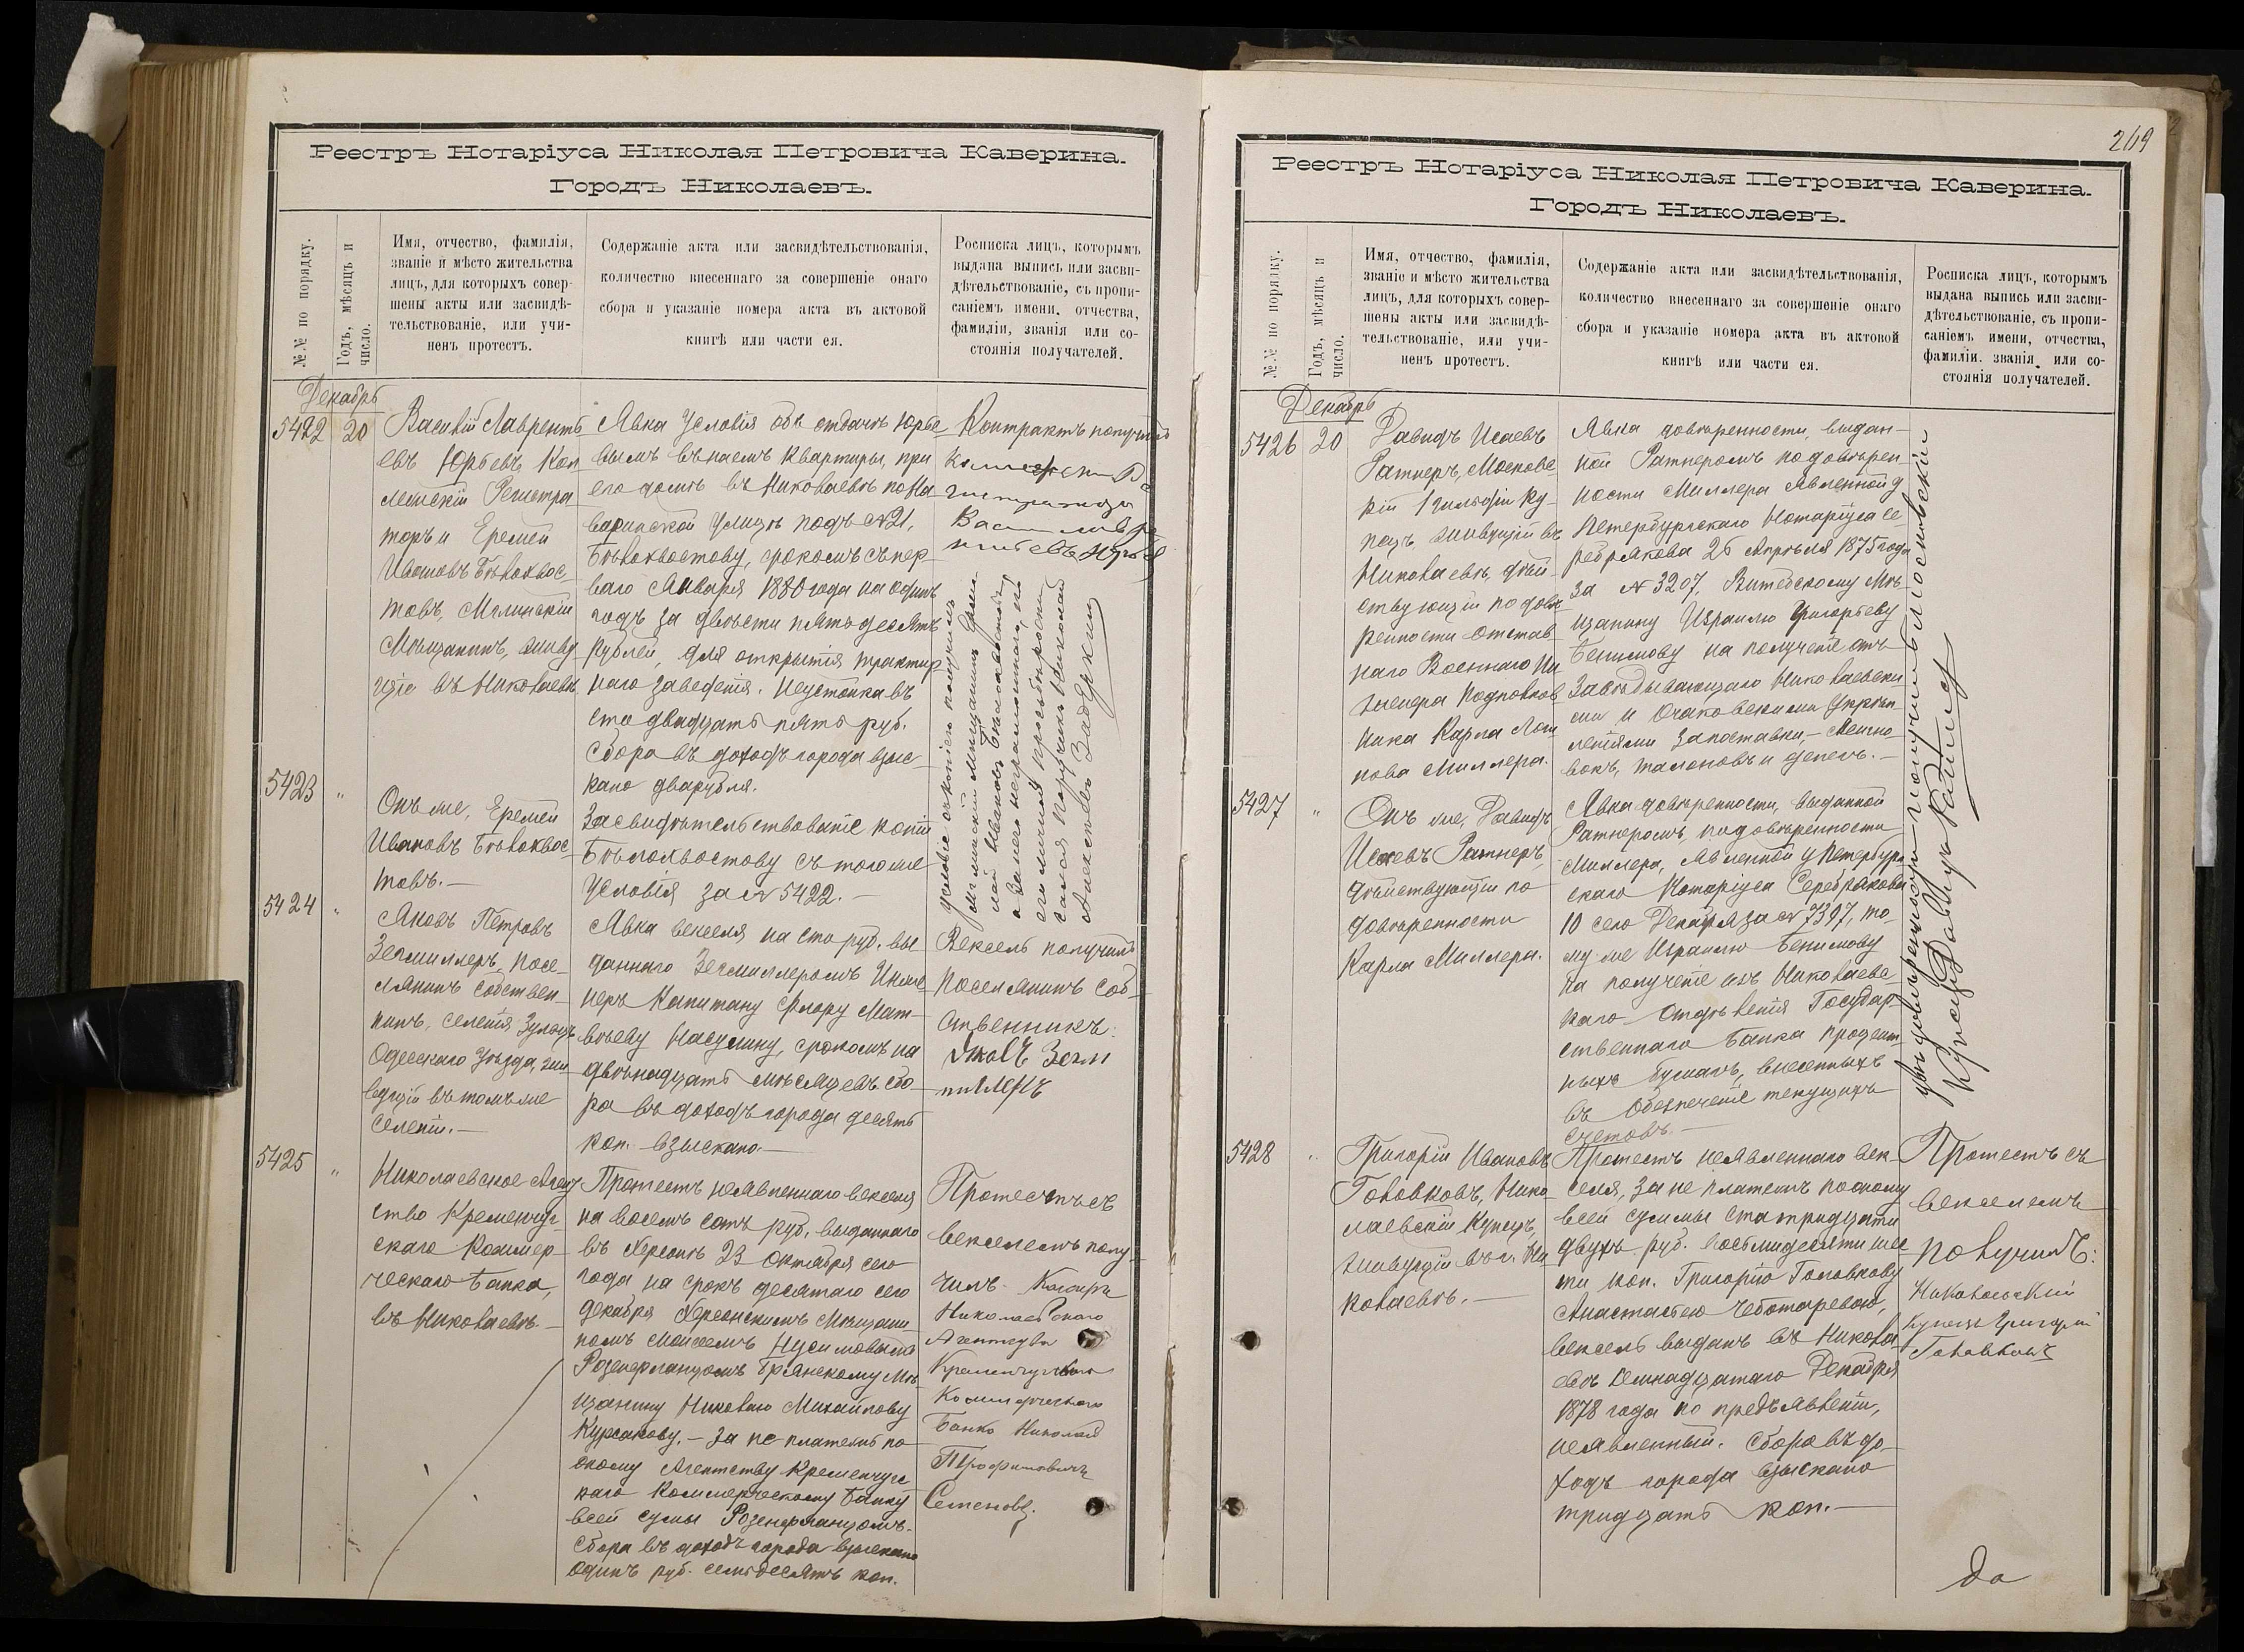 Реестръ Нотаріуса Николая Петровича Каверина.
Городъ Николаевъ.
№№ по порядку.
Годъ, мѣсяцъ и
число.
Имя, отчество, фамилія,
званіе и мѣсто жительства
лицъ, для которыхъ совер-
шены акты или засвидѣ-
тельствованіе, или учи-
ненъ протестъ.
Содержаніе акта или засвидѣтельствованія,
количество внесеннаго за совершеніе онаго
сбора и указаніе номера акта въ актовой
книгѣ или части ея.
Росписка лицъ, которымъ
выдана выпись или засви-
дѣтельствованіе, съ пропи-
саніемъ имени, отчества,
фамиліи, званія или со-
стоянія получателей.
Декабрь
5422
20
Василій Лавренть
евъ Юрьевъ Кол
лежскій Регистра
торъ и Еремей
Ивановъ Бѣлохвос-
товъ, Мглинскій
Мѣщанинъ, живу
щіе въ Николаевѣ
Явка Условія объ отдачѣ Юрье
вымъ въ наемъ квартиры, при
его домѣ въ Николаевѣ по На
варинской улицѣ подъ №21,
Бѣлохвостову, срокомъ съ пер-
ваго Января 1880 года на одинъ
годъ за двѣсти пятьдесятъ
рублей, для открытія трактир
наго заведенія. Неустойка въ
сто двадцать пять руб.
Сбора въ доходъ города взыс-
кано два рубля.
Контрактъ получилъ
Условіе съ копіею получилъ
Мглинскій Мѣщанинъ Ере-
мей Ивановъ Бѣлохвостовъ,
а за него неграмотнаго, по
его личной просьбѣ росписал
5423
"
Онъ же, Еремей
Ивановъ Бѣлохвос-
товъ.-
Засвидѣтельствованіе копіи
Бѣлохвостову съ того же
Условія за № 5422.-
5424
"
Яковъ Петровъ
Зегмиллеръ, посе-
лянинъ собствен-
никъ, селенія Зульцъ
Одесскаго уѣзда, жи
вущій въ томъ же
селеніи.-
Явка векселя на сто руб. вы
даннаго Зегмиллеромъ Инже-
неръ Капитану Флору Мат-
вѣеву Насулину, срокомъ на
двѣнадцать мѣсяцевъ сбо-
ра въ доходъ города десять
коп. взыскано.-
Вексель получилъ
Поселянинъ соб-
ственникъ:
Яковъ Зегм
иллеръ
5425
"
Николаевское Агент
ство Кременчуг-
скаго Коммер-
ческаго Банка,
въ Николаевѣ.-
Протестъ неявленнаго векселя
на восемь сотъ руб., выданнаго
въ Херсонѣ 23 Октября сего
года на срокъ десятаго сего
декабря Херсонскимъ Мѣщани-
номъ Мойсеемъ Нусимовымъ
Розенерланцомъ Брянскому Мѣ-
щанину Николаю Михайлову
Курсакову.- За не платежъ по
оному Агентству Кременчугс
каго Коммерческому Банку
всей сумы Розенерланцомъ.
Сбора въ доходъ города взыскано
одинъ руб. семьдесятъ коп.
Протестъ съ
векселемъ полу-
чилъ Кассиръ
Николаевскаго
Агентства
Кременчугскаго
Коммерческаго
Банка Николай
Трофимовичъ
Семеновъ.
269
Реестръ Нотаріуса Николая Петровича Каверина.
Городъ Николаевъ.
№№ по порядку.
Годъ, мѣсяцъ и
число.
Имя, отчество, фамилія,
званіе и мѣсто жительства
лицъ, для которыхъ совер-
шены акты или засвидѣ-
тельствованіе, или учи-
ненъ протестъ.
Содержаніе акта или засвидѣтельствованія,
количество внесеннаго за совершеніе онаго
сбора и указаніе номера акта въ актовой
книгѣ или части ея.
Росписка лицъ, которымъ
выдана выпись или засви-
дѣтельствованіе, съ пропи-
саніемъ имени, отчества,
фамиліи. званія или со-
стоянія получателей.
Декабрь
5426
20
Давидъ Исаевъ
Ратнеръ, Московс
кій 1 гильдіи Ку-
пецъ, живущій въ
Николаевѣ, дѣй-
ствующій по довѣ
ренности Отстав
наго Военнаго Ин
женера Подполков
ника Карла Логи
нова Миллера.
Явка довѣренности, выдан-
ной Ратнеромъ по довѣрен-
ности Миллера явленной у
Петербургскаго Нотаріуса Се-
ребрякова 26 Апрѣля 1875 года
за № 3207, Витебскому Мѣ
щанину Израилю Григорьеву
Бенимову на полученіе отъ
Завѣдывающаго Николаевски-
ми и Очаковскими Укрѣп-
леніями за поставки,- Ассигно
вокъ, талоновъ и денегъ.-
двѣ довѣренности получилъ Московскій
Купецъ Давидъ Ратнер
5427
"
Онъ же, Давидъ
Исаевъ Ратнеръ,
дѣйствующій по
довѣренности
Карла Миллера.
Явка довѣренности, выданной
Ратнеромъ, по довѣренности
Миллера, явленной у Петербург
скаго Нотаріуса Серебрякова
10 сего Декабря за № 7397, то-
му же Израилю Бенимову
на полученіе изъ Николаевс
каго Отдѣленія Государ
ственнаго Банка процент
ныхъ бумагъ, внесенныхъ
въ обезпеченіе текущихъ
счетовъ.-
5428
"
Григорій Ивановъ
Головковъ, Нико-
лаевскій Купецъ,
живущій въ г. Ни
колаевѣ.-
Протестъ неявленнаго век-
селя, за не платежъ по оному
всей суммы ста тридцати
двухъ руб. восьмидесяти шес
ти коп. Григорію Головкову
Анастасіею Чеботаревою,
вексель выданъ въ Никола-
евѣ Семнадцатаго Декабря
1878 года по предъявленіи,
неявленный. Сбора въ до-
ходъ города взыскано
тридцать коп.-
Протестъ съ
векселемъ
получилъ:
Николаевскій
Купецъ Григорій
Головковъ
Да